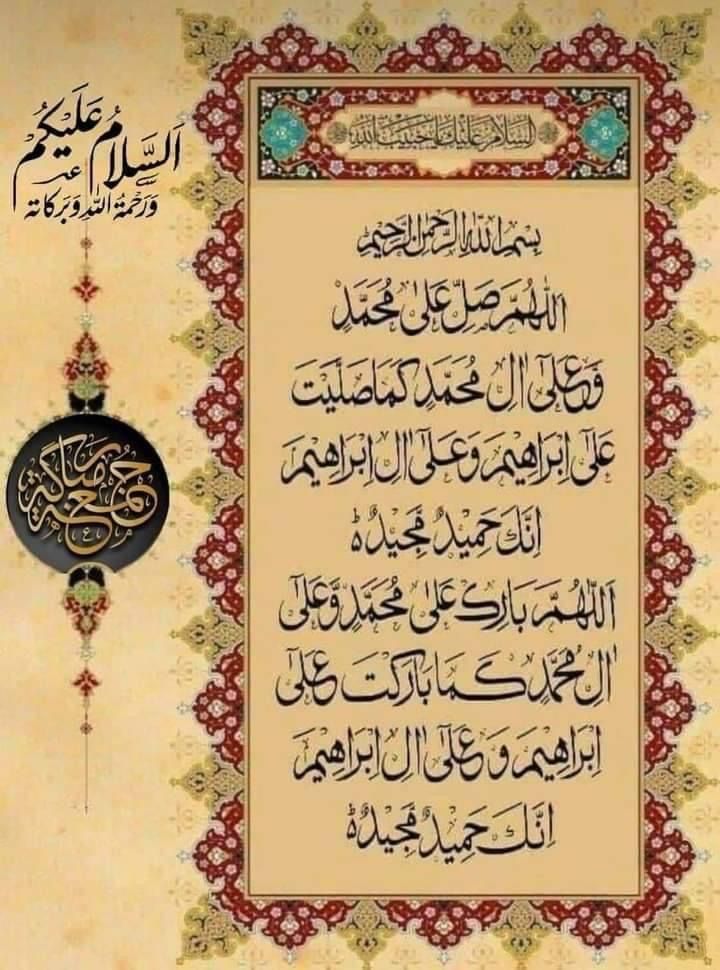 اَلسَّلَامُ عَلَيْكُمْ
وَرَحْمَةُ اللّٰهِ وَبَرَكَاتُهُ
جمعة مباركة
السلام عليك يا حبيب الله
بِسْمِ اللّٰهِ الرَّحْمٰنِ الرَّحِيْمِ
اَللّٰهُمَّ صَلِّ عَلٰى مُحَمَّدٍ
وَّعَلٰٓى اٰلِ مُحَمَّدٍ كَمَا صَلَّيْتَ
عَلٰٓى اِبْرَاهِيْمَ وَعَلٰٓى اٰلِ اِبْرَاهِيْمَ
اِنَّكَ حَمِيْدٌ مَّجِيْدٌ ؕ
اَللّٰهُمَّ بَارِكْ عَلٰى مُحَمَّدٍ وَّعَلٰٓى
اٰلِ مُحَمَّدٍ كَمَا بَارَكْتَ عَلٰٓى
اِبْرَاهِيْمَ وَعَلٰٓى اٰلِ اِبْرَاهِيْمَ
اِنَّكَ حَمِيْدٌ مَّجِيْدٌ ؕ